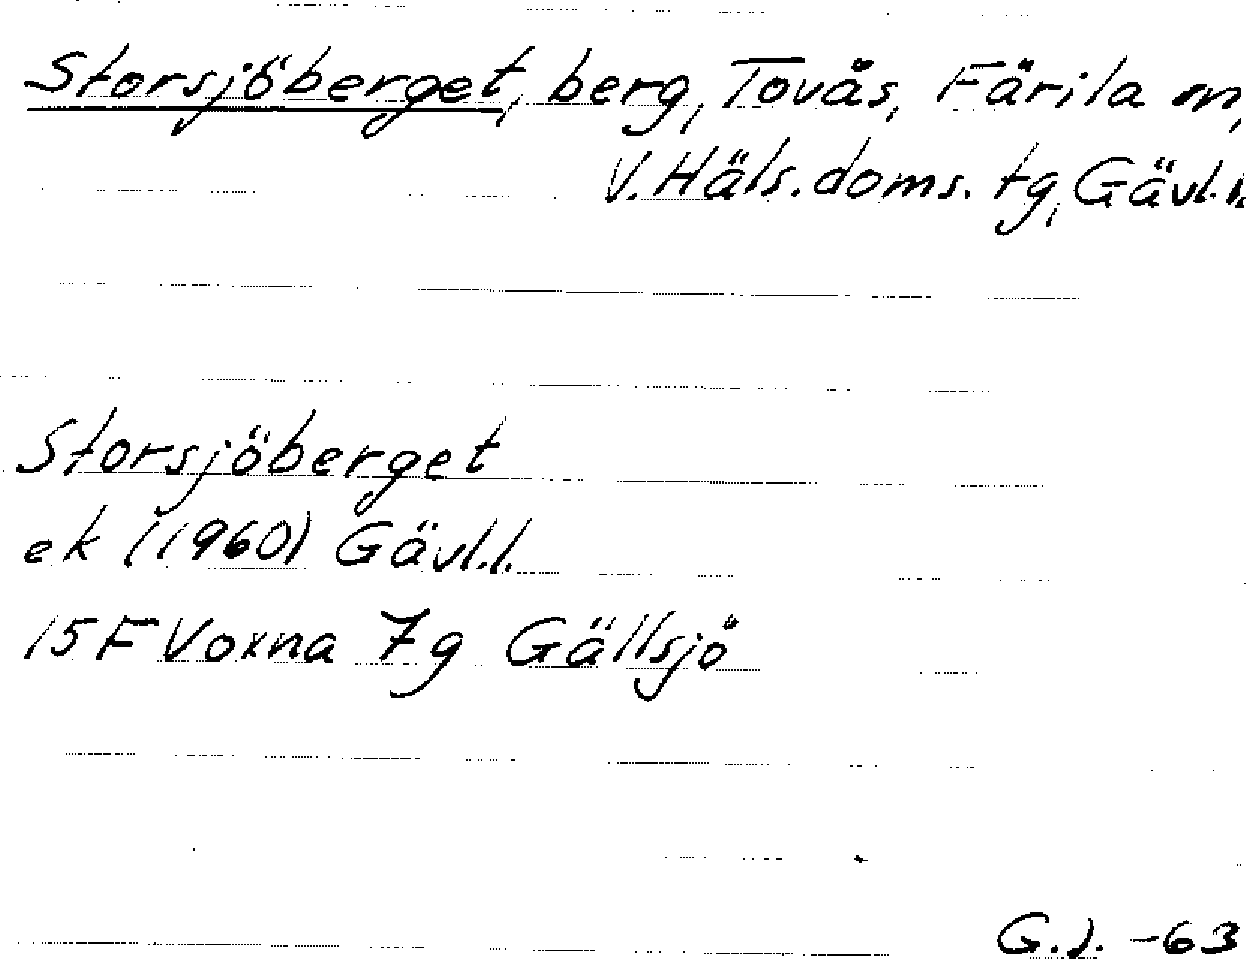 Storsjöberget, berg, Tovås, Färila sn,
V. Häls. doms. tg, Gävl.l.
Storsjöberget
ek (1960) Gävl.l.
15F Voxna 7g Gällsjö
G.J. -63